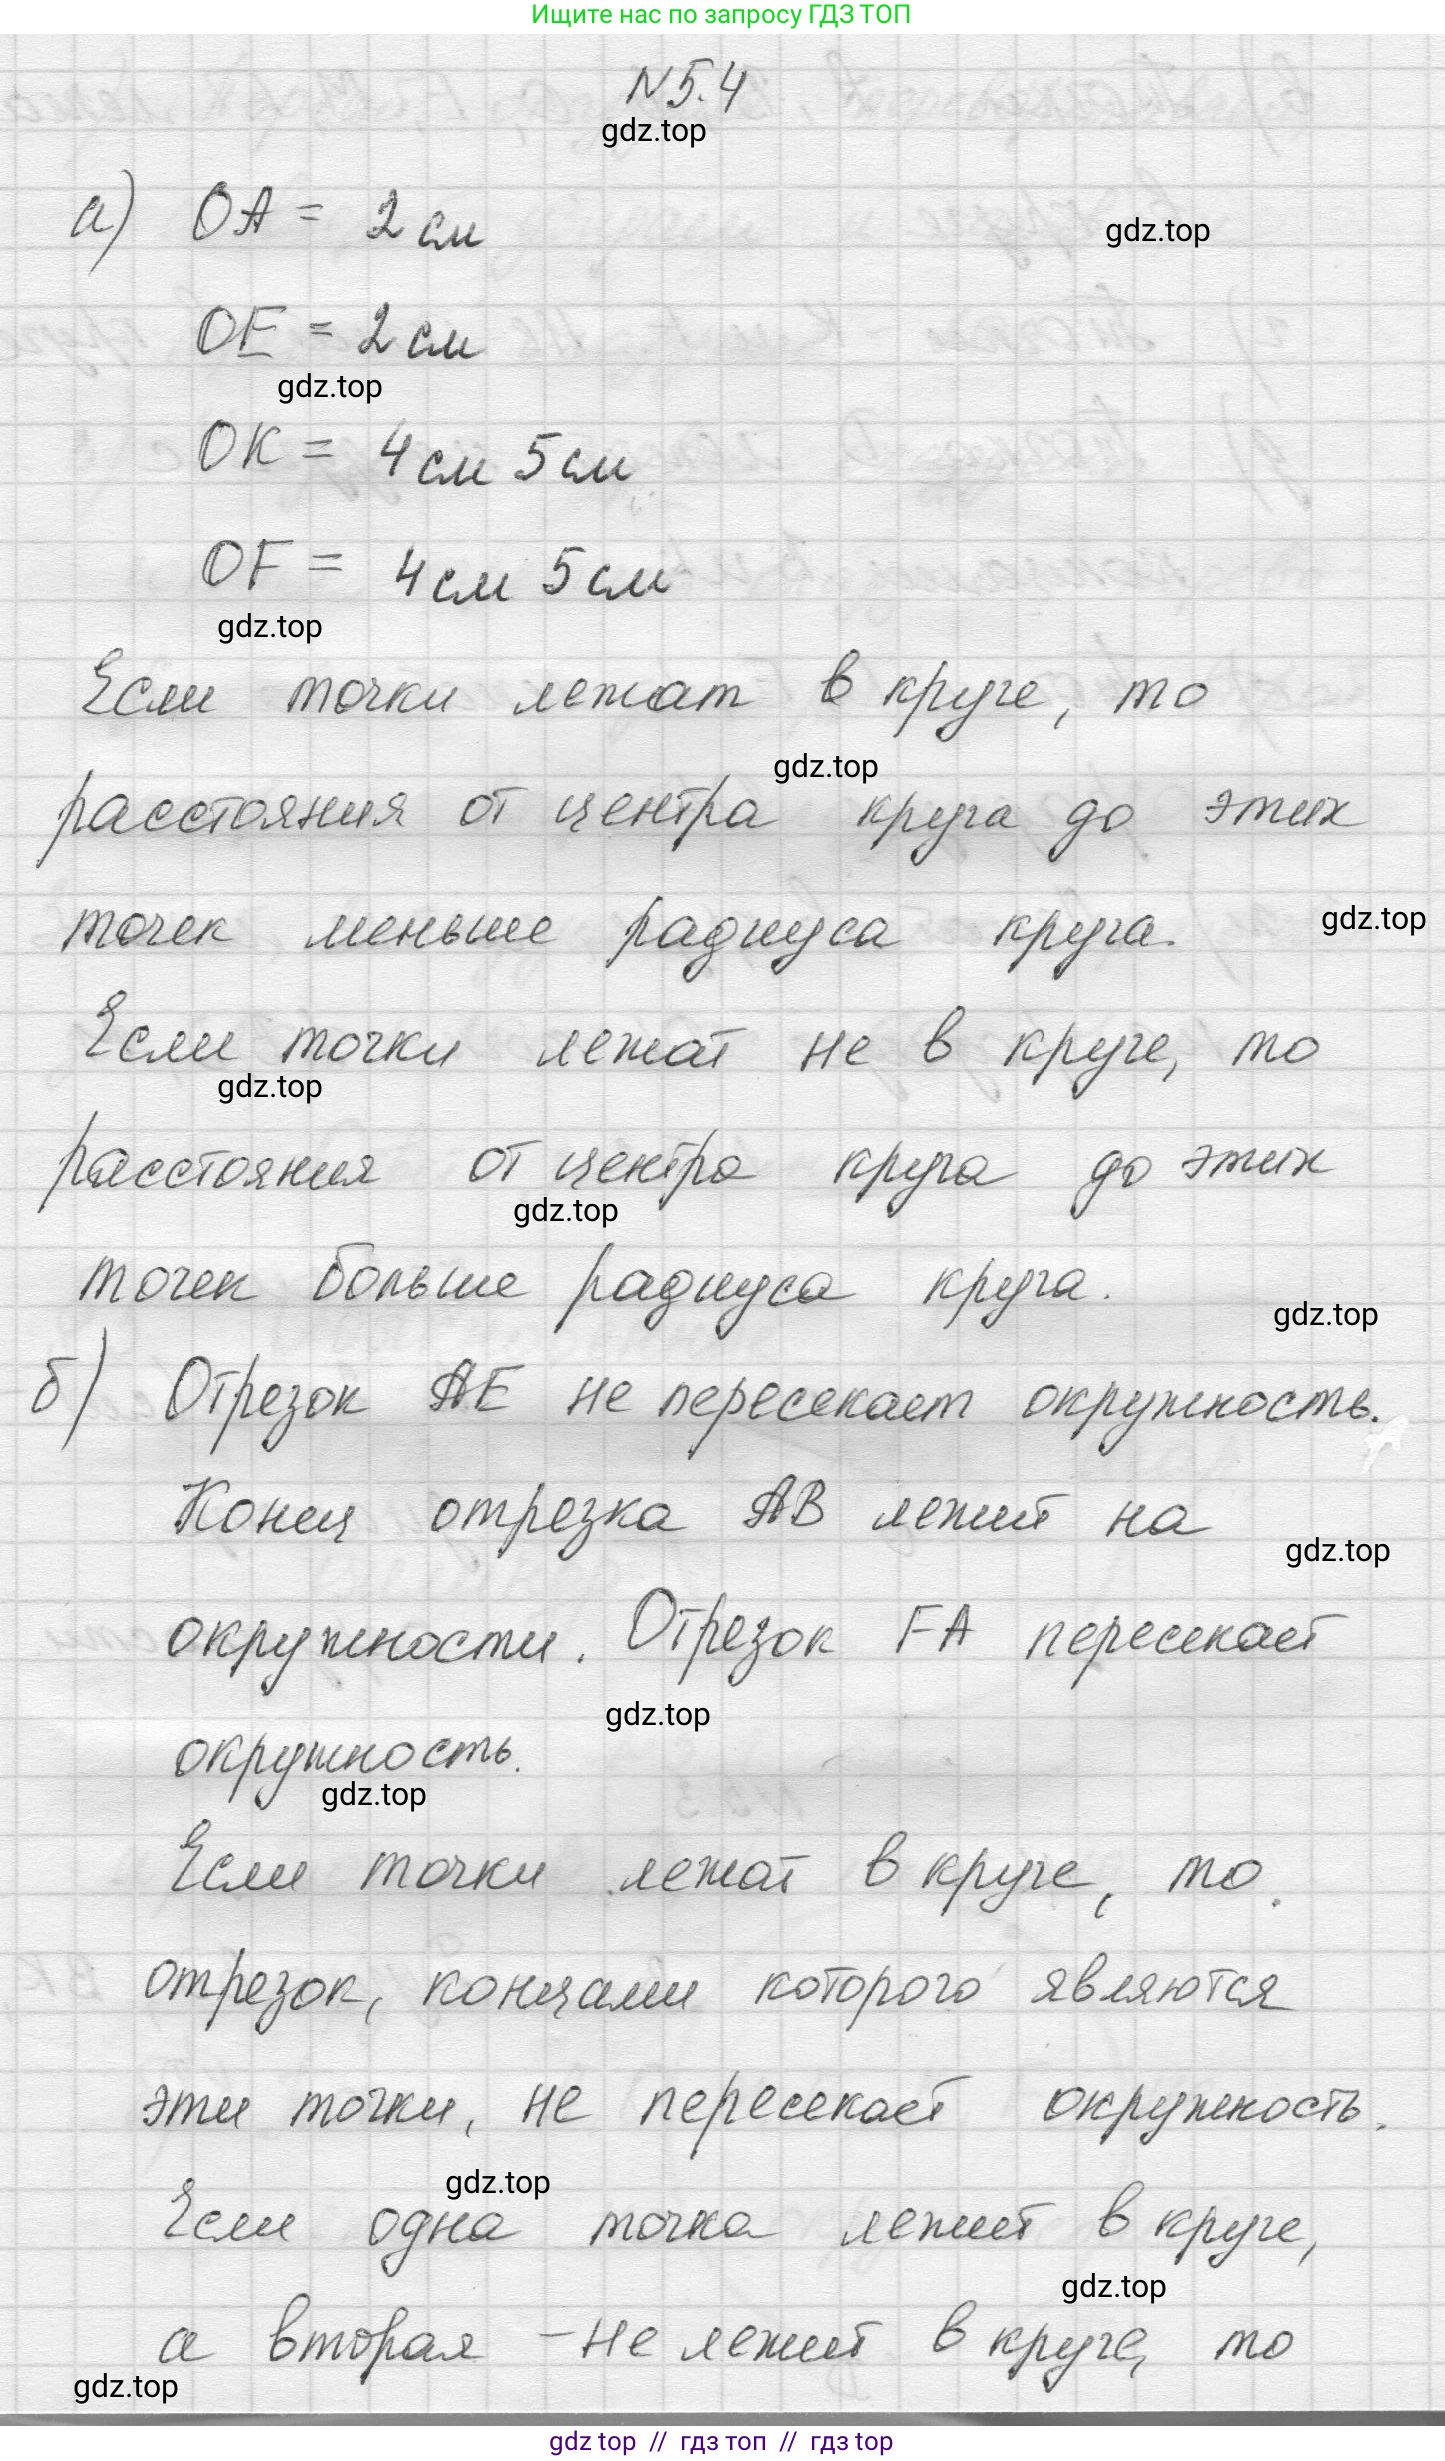 Ищите нас по запросу ГДЗ ТОП
N5.4
gdz.top
а) OA = 2 см
gdz.top
OE = 2 см
gdz.top
OK = 4 см 5 см
OF = 4 см 5 см
gdz.top
Если точки лежат в круге, то
gdz.top
расстояния от центра круга до этих
точек меньше радиуса круга.
gdz.top
Если точки лежат не в круге, то
gdz.top
расстояния от центра круга до этих
gdz.top
точек больше радиуса круга.
gdz.top
б) Отрезок AE не пересекает окружность.
Конец отрезка AB лежит на
gdz.top
окружности. Отрезок FA пересекает
gdz.top
окружность.
gdz.top
Если точки лежат в круге, то
отрезок, концами которого являются
эти точки, не пересекает окружность.
gdz.top
Если одна точка лежит в круге,
gdz.top
а вторая - не лежит в круге, то
gdz.top
gdz top // гдз топ // гдз top